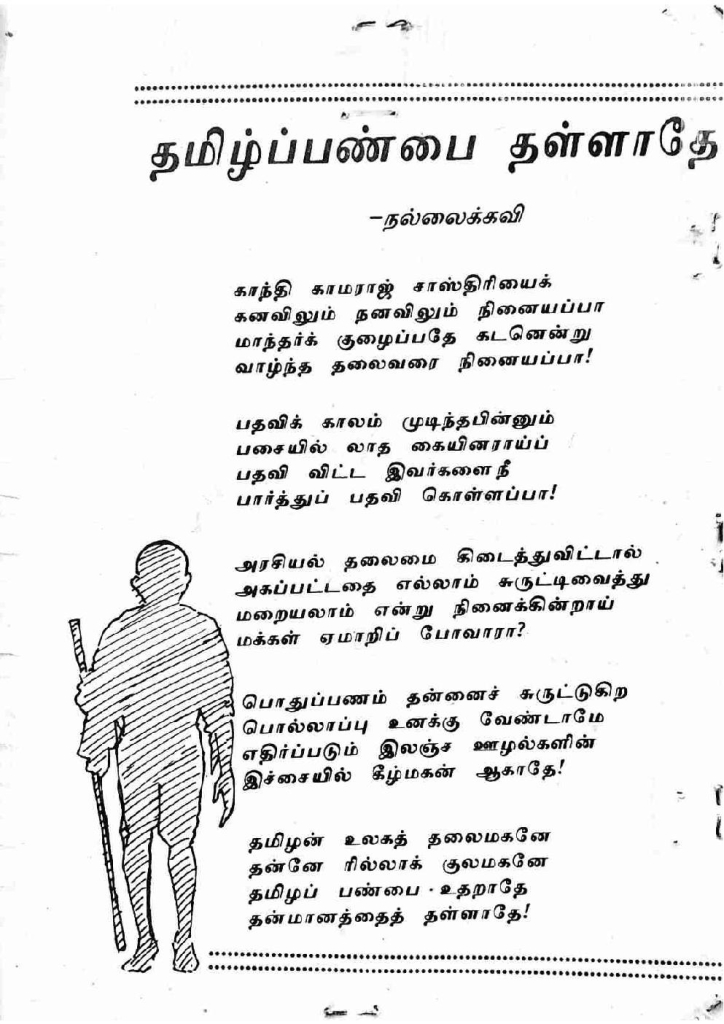 தமிழ்ப்பண்பை தள்ளாதே
-நல்லைக்கவி
காந்தி காமராஜ் சாஸ்திரியைக்
கனவிலும் நனவிலும் நினையப்பா
மாந்தர்க் குழைப்பதே கடனென்று
வாழ்ந்த தலைவரை நினையப்பா!
பதவிக் காலம் முடிந்தபின்னும்
பசையில் லாத கையினராய்ப்
பதவி விட்ட இவர்களை நீ
பார்த்துப் பதவி கொள்ளப்பா!
அரசியல் தலைமை கிடைத்துவிட்டால்
அகப்பட்டதை எல்லாம் சுருட்டிவைத்து
மறையலாம் என்று நினைக்கின்றாய்
மக்கள் ஏமாறிப் போவாரா?
பொதுப்பணம் தன்னைச் சுருட்டுகிற
பொல்லாப்பு உனக்கு வேண்டாமே
எதிர்ப்படும் இலஞ்ச ஊழல்களின்
இச்சையில் கீழ்மகன் ஆகாதே!
தமிழன் உலகத் தலைமகனே
தன்னே ரில்லாக் குலமகனே
தமிழப் பண்பை உதறாதே
தன்மானத்தைத் தள்ளாதே!